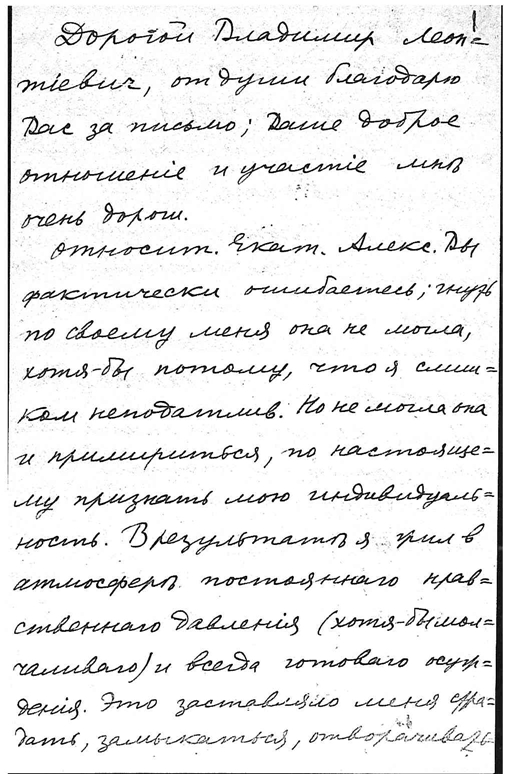 Дорогой Владимир Леон=
тіевич, от души благодарю
Вас за письмо; Ваше доброе
отношеніе и участіе мнѣ
очень дороги.
Относит. Екат. Алекс. Вы
фактически ошибаетесь; гнуть
по своему меня она не могла,
хотя-бы потому, что я слиш=
ком неподатлив. Но не могла она
и примириться, по настояще=
му признать мою индивидуаль=
ность. В результатѣ я жил в
атмосферѣ постояннаго нрав=
ственнаго давленія (хотя-бы мол=
чаливаго) и всегда готоваго осуж=
денія. Это заставляло меня стра=
дать, замыкаться, отворачивать